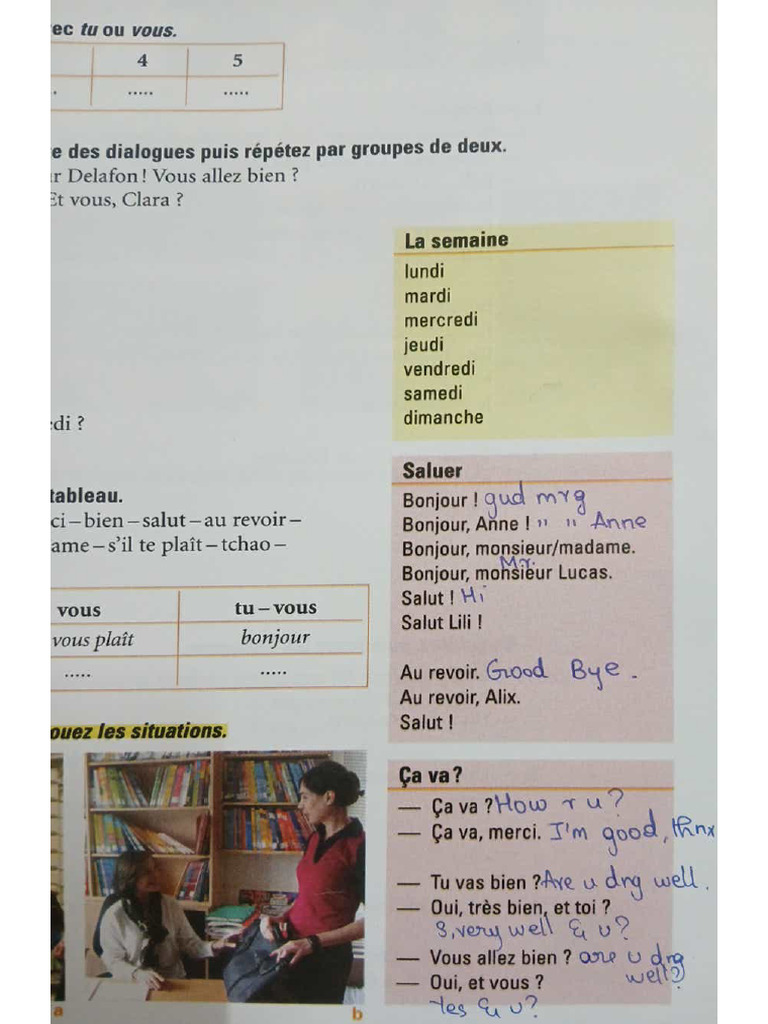 ec tu ou vous.
4 5
. ..... .....
e des dialogues puis répétez par groupes de deux.
r Delafon ! Vous allez bien ?
Et vous, Clara ?
di ?
tableau.
ci – bien – salut – au revoir –
ame – s'il te plaît – tchao –
vous tu – vous
vous plaît bonjour
..... .....
ouez les situations.
a b
La semaine
lundi
mardi
mercredi
jeudi
vendredi
samedi
dimanche
Saluer
Bonjour ! gud mrg
Bonjour, Anne ! " " Anne
Bonjour, monsieur/madame.
Mr.
Bonjour, monsieur Lucas.
Salut ! Hi
Salut Lili !
Au revoir. Good Bye.
Au revoir, Alix.
Salut !
Ça va ?
— Ça va ? How r u?
— Ça va, merci. I'm good, thnx
— Tu vas bien ? Are u dng well.
— Oui, très bien, et toi ?
S, very well & u?
— Vous allez bien ? are u dng
well?
— Oui, et vous ?
Yes & u?